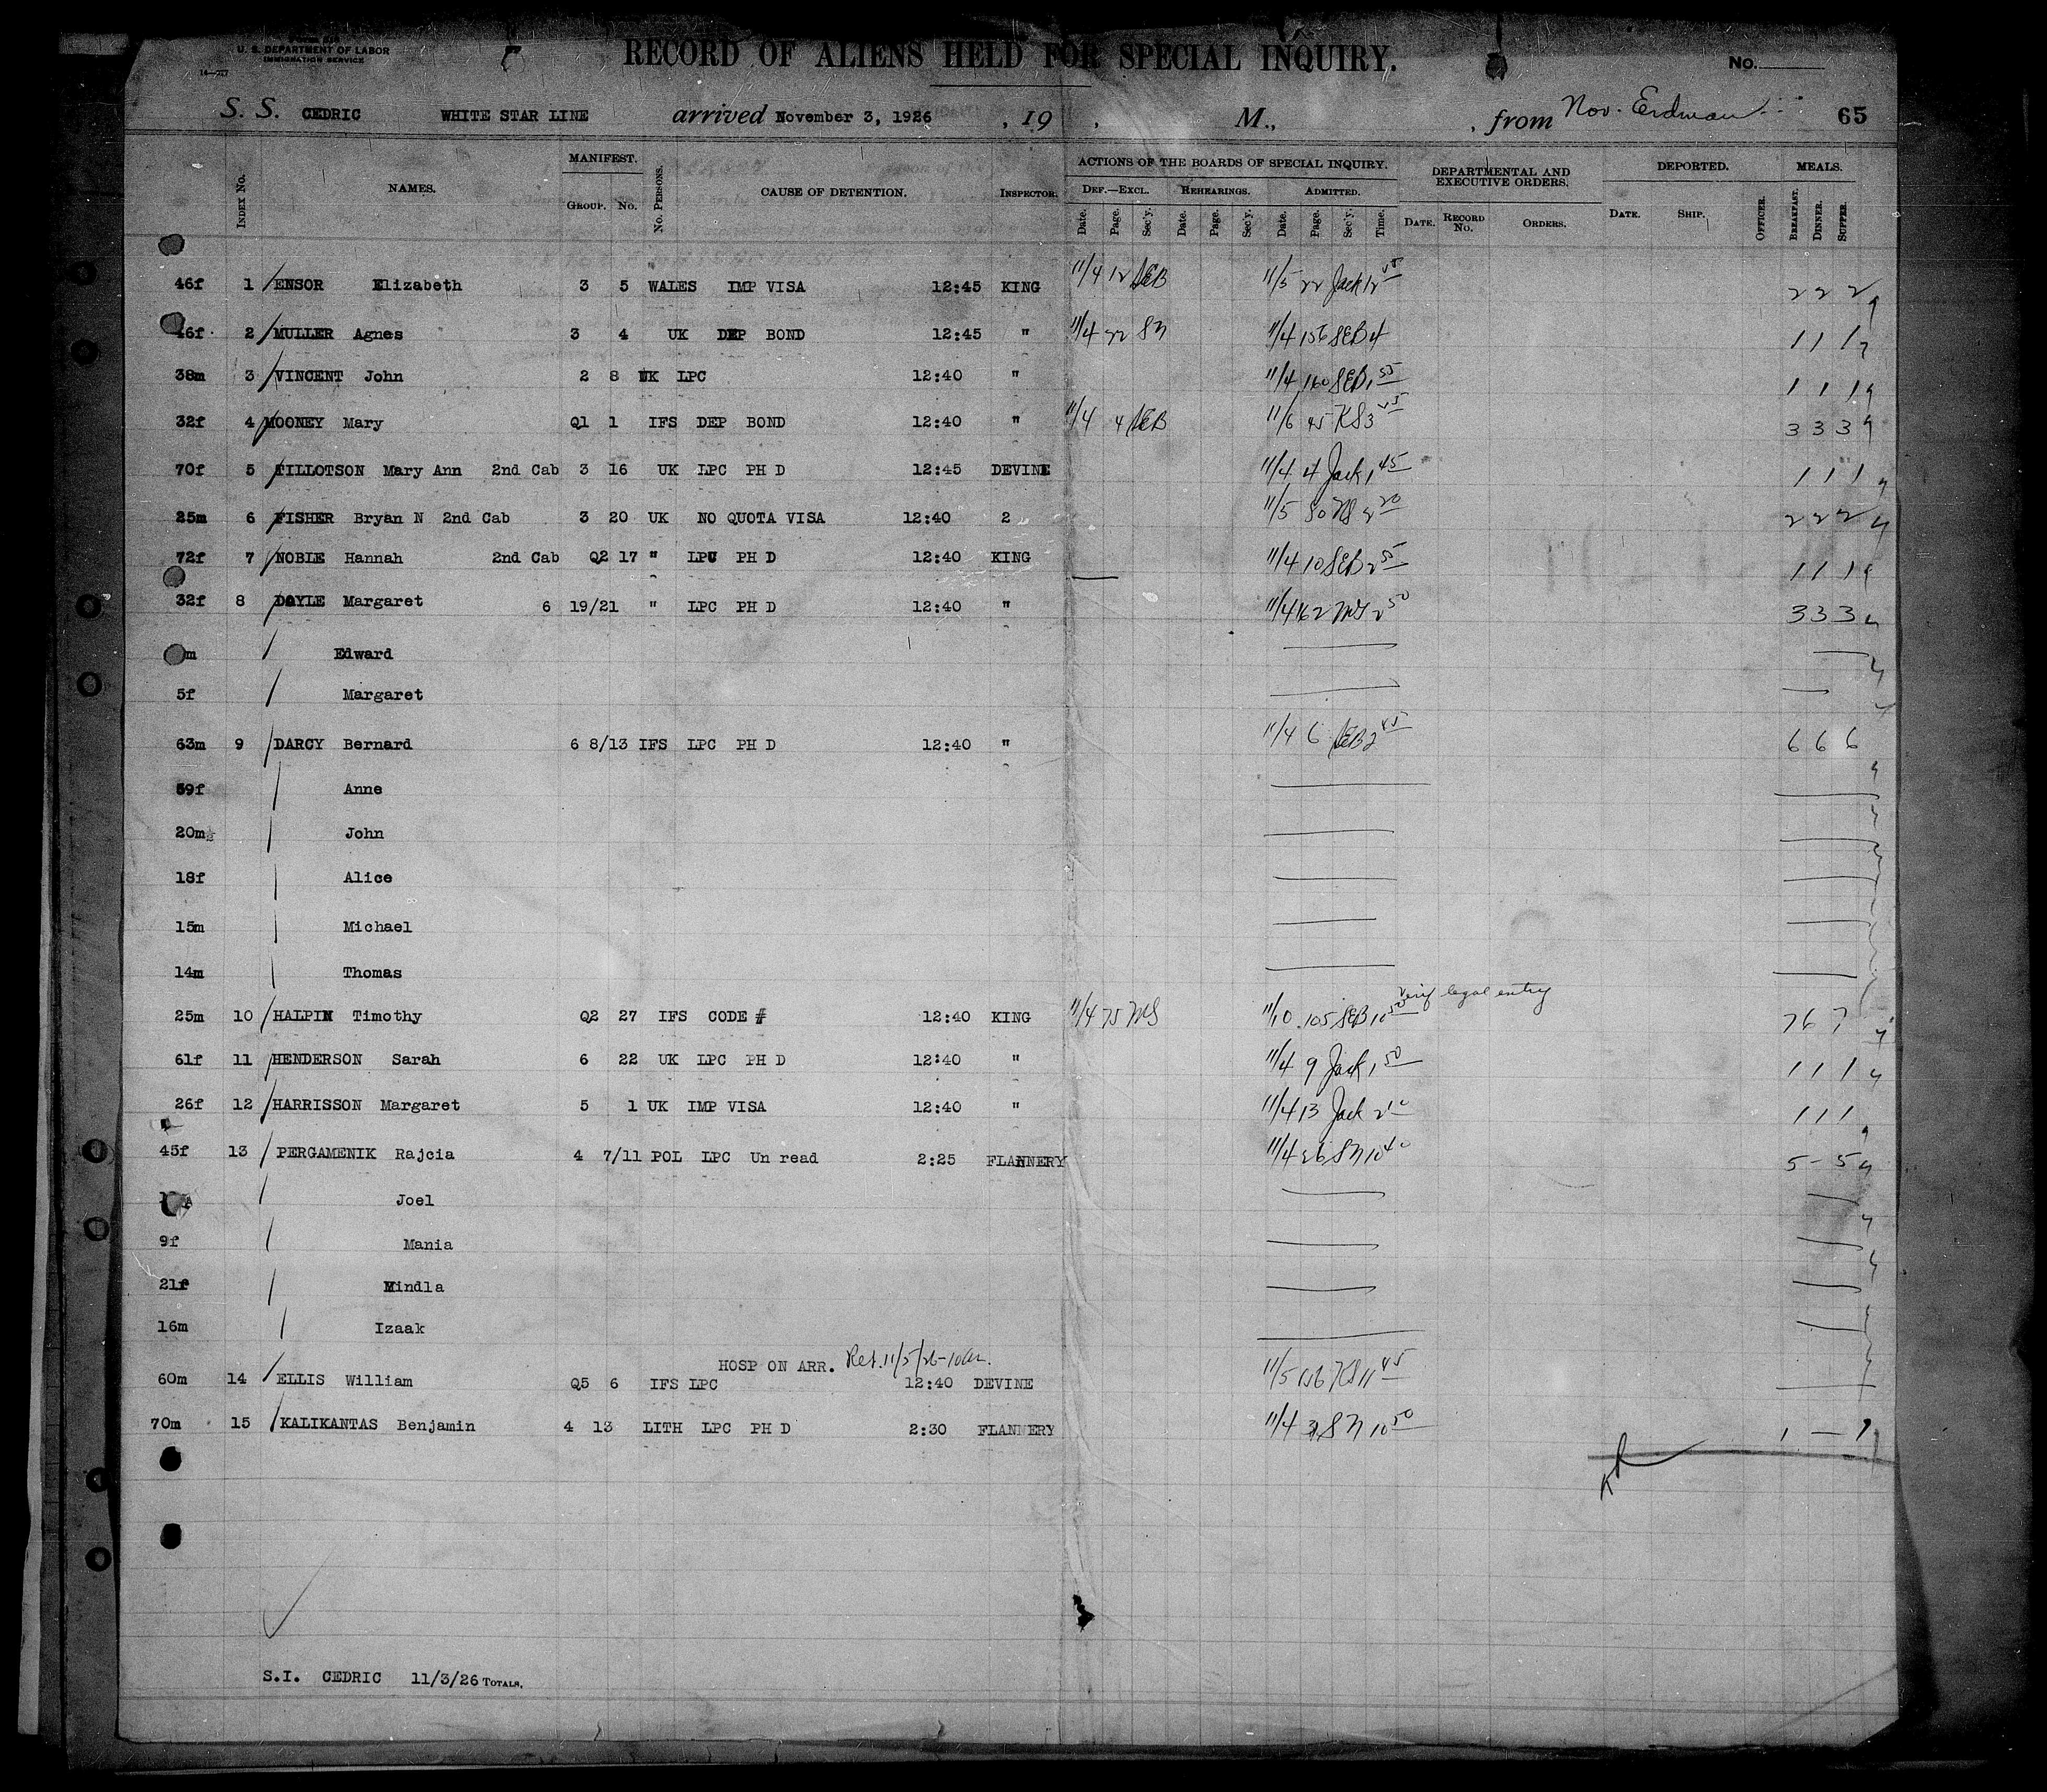 U. S. DEPARTMENT OF LABOR
IMMIGRATION SERVICE
14—217
RECORD OF ALIENS HELD FOR SPECIAL INQUIRY.
No.
S. S. CEDRIC WHITE STAR LINE arrived November 3, 1926 , 19 , M., , from Nov. Erdman 65
Index No. NAMES. MANIFEST. Group. No. No. Persons. CAUSE OF DETENTION. Inspector. ACTIONS OF THE BOARDS OF SPECIAL INQUIRY. DEPARTMENTAL AND EXECUTIVE ORDERS. DEPORTED. MEALS.
Def.—Excl. Rehearings. Admitted.
Date. Page. Sec'y. Date. Page. Sec'y. Date. Page. Sec'y. Time. Date. Record No. Orders. Date. Ship. Officer. Breakfast. Dinner. Supper.
46f 1 ENSOR Elizabeth 3 5 WALES IMP VISA 12:45 KING 11/4 12 SEB 11/5 22 Jack 12 2 2 2
46f 2 MULLER Agnes 3 4 UK DEP BOND 12:45 " 11/4 22 SN 11/4 156 SEB 4 1 1 1
38m 3 VINCENT John 2 8 UK LPC 12:40 " 11/4 160 SEB 1 55 1 1 1
32f 4 MOONEY Mary Q1 1 IFS DEP BOND 12:40 " 11/4 4 SEB 11/6 45 KS 3 3 3 3
70f 5 TILLOTSON Mary Ann 2nd Cab 3 16 UK LPC PH D 12:45 DEVINE 11/4 4 Jack 1 45 1 1 1
25m 6 FISHER Bryan N 2nd Cab 3 20 UK NO QUOTA VISA 12:40 2 11/5 80 2 20 2 2 2
72f 7 NOBLE Hannah 2nd Cab Q2 17 " LPC PH D 12:40 KING 11/4 10 SEB 2 1 1 1
32f 8 DOYLE Margaret 6 19/21 " LPC PH D 12:40 " 11/4 162 MS 2 50 3 3 3
m Edward
5f Margaret
63m 9 DARCY Bernard 6 8/13 IFS LPC PH D 12:40 " 11/4 6 SEB 2 45 6 6 6
59f Anne
20m John
18f Alice
15m Michael
14m Thomas
Verif legal entry
25m 10 HALPIN Timothy Q2 27 IFS CODE # 12:40 KING 11/4 75 MS 11/10 105 SEB 10 50 7 6 7
61f 11 HENDERSON Sarah 6 22 UK LPC PH D 12:40 " 11/4 9 Jack 1 50 1 1 1
26f 12 HARRISSON Margaret 5 1 UK IMP VISA 12:40 " 11/4 13 Jack 2 10 1 1 1
45f 13 PERGAMENIK Rajcia 4 7/11 POL LPC Un read 2:25 FLANNERY 11/4 26 SN 10 40 5 - 5
Joel
9f Mania
21f Mindla
16m Izaak
HOSP ON ARR. Rel. 11/5/26-10am.
60m 14 ELLIS William Q5 6 IFS LPC 12:40 DEVINE 11/5 136 KS 11 45
70m 15 KALIKANTAS Benjamin 4 13 LITH LPC PH D 2:30 FLANNERY 11/4 31 SN 10 50 1 — 1
S.I. CEDRIC 11/3/26 Totals.